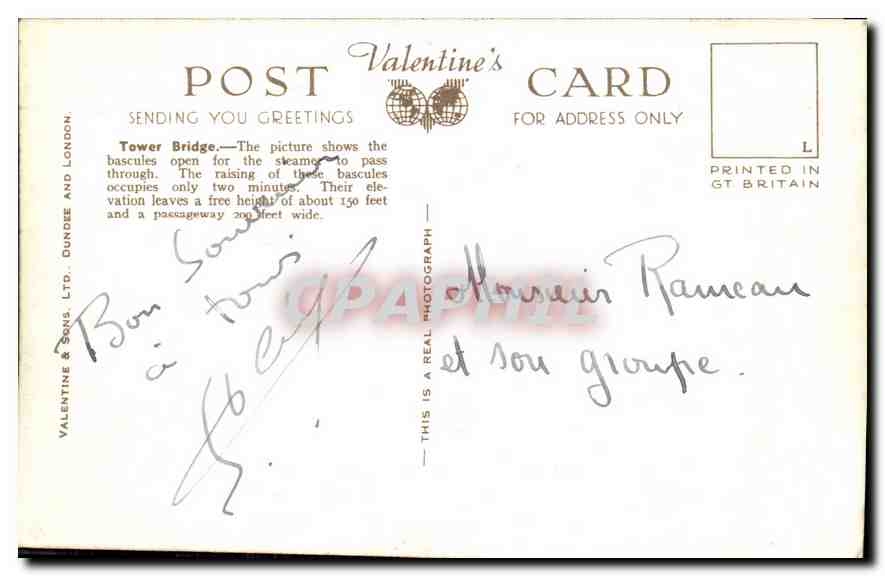 Valentine's
POST CARD
SENDING YOU GREETINGS
FOR ADDRESS ONLY
L
PRINTED IN
GT. BRITAIN
Tower Bridge.—The picture shows the
bascules open for the steamer to pass
through. The raising of these bascules
occupies only two minutes. Their ele-
vation leaves a free height of about 150 feet
and a passageway 200 feet wide.
VALENTINE & SONS, LTD., DUNDEE AND LONDON.
— THIS IS A REAL PHOTOGRAPH —
Bon Souvenir
à tous
Monsieur Rameau
et son groupe.
CPAPHIL